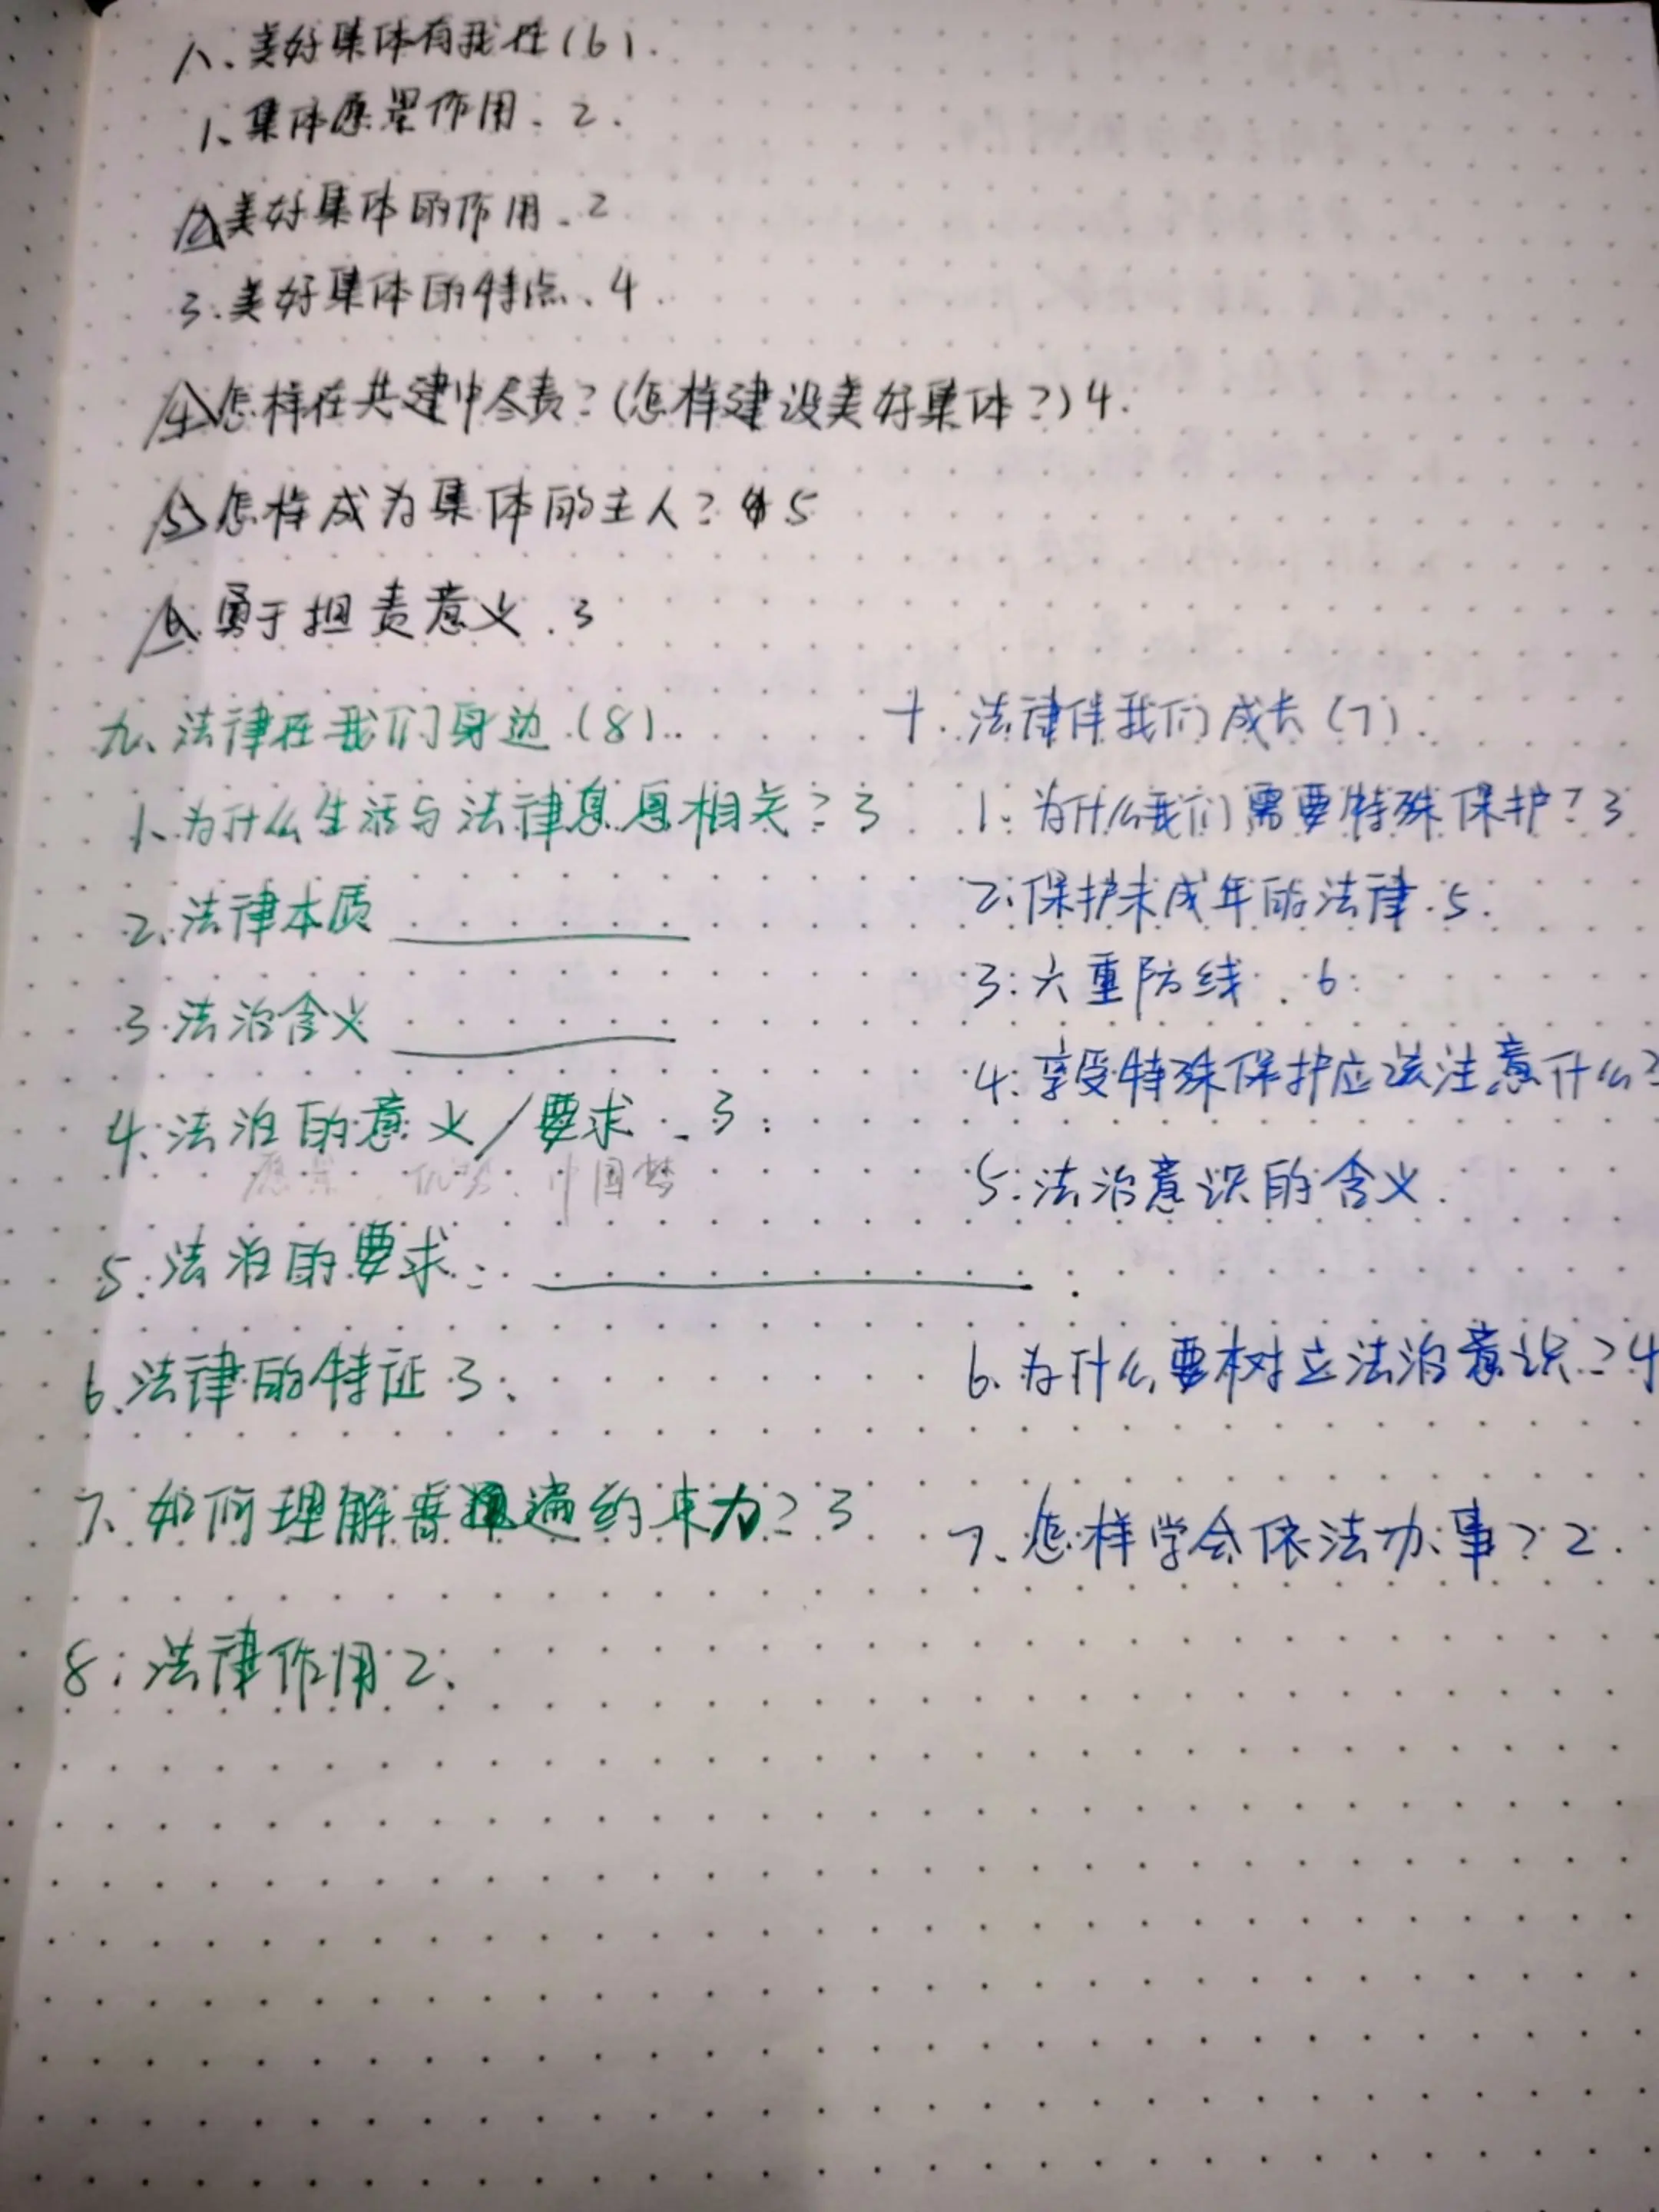 八、美好集体有我在(6).
1、集体愿景作用、2.
2美好集体的作用、2
3.美好集体的特点、4
4怎样在共建中尽责?(怎样建设美好集体?)4.
5怎样成为集体的主人? 5
6勇于担责意义.3
九、法律在我们身边(8).
1、为什么生活与法律息息相关?3
2、法律本质
3.法治含义
4、法治的意义/要求 3
中国梦
5.法治的要求:
6、法律的特征3、
7、如何理解普遍约束力?3
8.法律作用2、
十.法律伴我们成长(7).
1.为什么我们需要特殊保护?3
2.保护未成年的法律.5.
3.六重防线.6
4.享受特殊保护应该注意什么?
5.法治意识的含义.
6、为什么要树立法治意识?4
7、怎样学会依法办事?2.